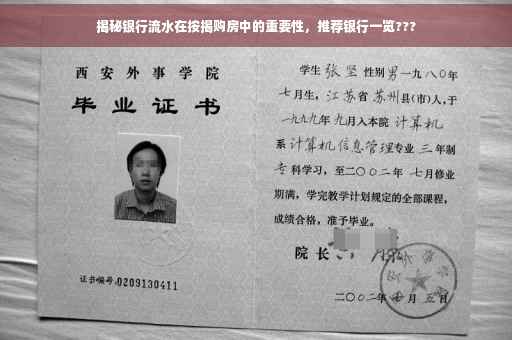 揭秘银行流水在按揭购房中的重要性，推荐银行一览???
西安外事学院
毕业证书
证书编号:0209130411
学生 张坚 性别 男 一九八〇年
七月生，江苏省 苏州 县(市)人，于
一九九九年 九月入本院 计算机
系 计算机信息管理 专业 三 年制
专 科学习，至二〇〇二年 七月修业
期满，学完教学计划规定的全部课程，
成绩合格，准予毕业。
院长
二〇〇二年 七月 五日